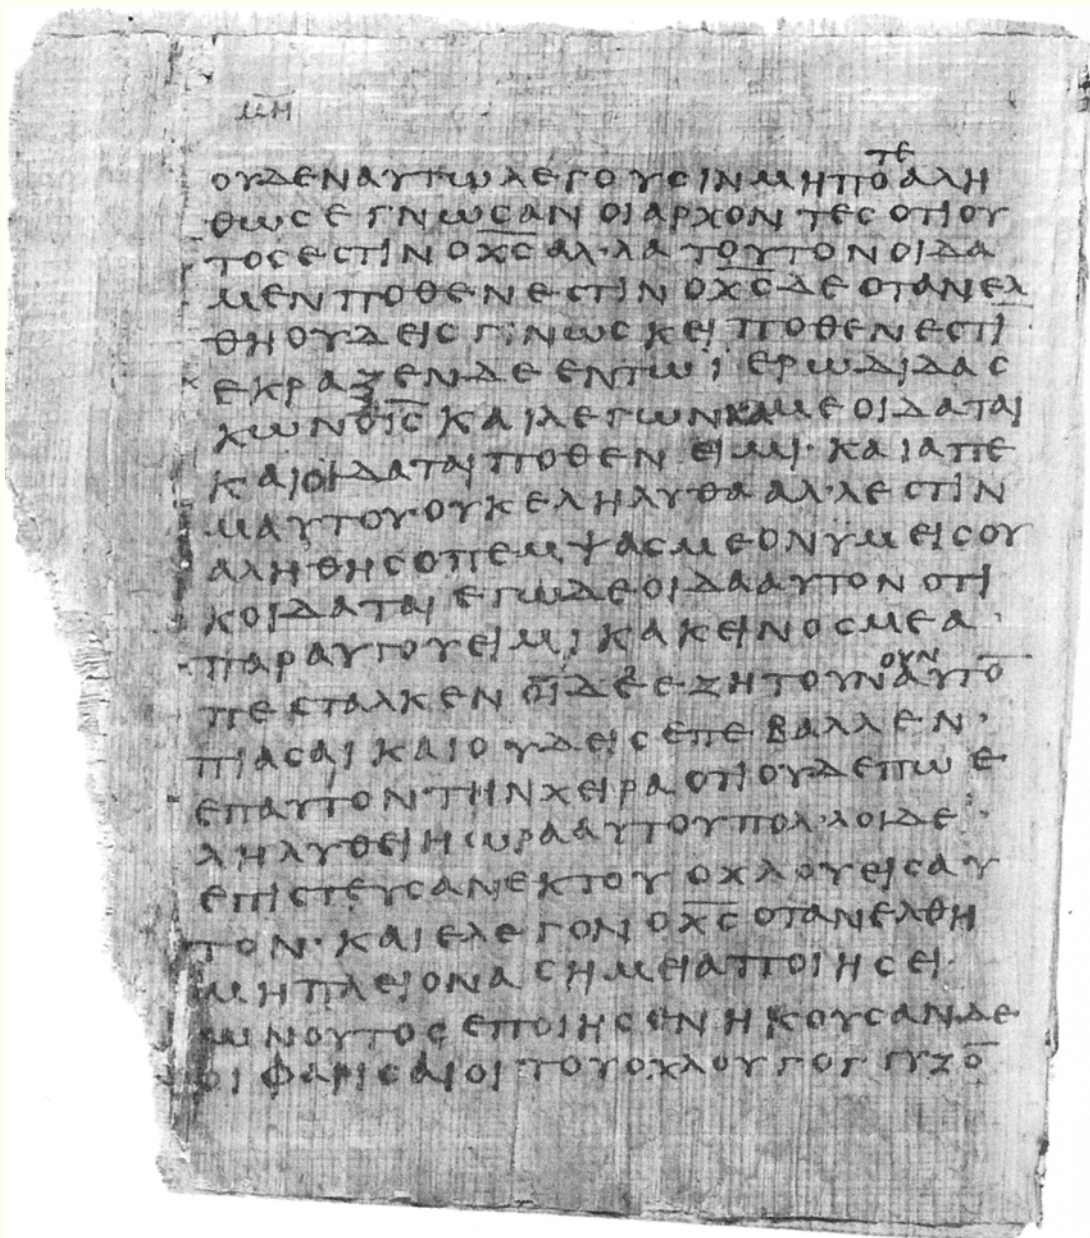 μη
ουδεναυτωλεγουσινμηποτεαλη
θωσεγνωσανοιαρχοντεσοτιου
τοσεστινοχ̅σ̅αλ·λατουτονοιδα
μενποθενεστινοχ̅σ̅δεοτανελ
θηουδεισγινωσκειποθενεστι̅
εκραξενδεεντωϊερωδιδασ
κωνοι̅σ̅καιλεγωνκαμεοιδαται
καιοιδαταιποθενειμι·καιαπε
μαυτουουκεληλυθααλ·λεστιν
αληθησοπεμψασμεονϋμεισου
κοιδαταιεγωδεοιδααυτονοτι
παραυτουειμικακεινοσμεα·
πεσταλκενοιδεεζητουνουναυτο̅
πιασαικαιουδεισεπεβαλλεν·
επαυτοντηνχειραοτιουδεπωε
ληλυθειηωρααυτουπολ·λοιδε·
επιστευσανεκτουοχλουεισαυ
τον·καιελεγονοχ̅σ̅οτανελθη
μηπλειονασημειαποιησει·
ωνουτοσεποιησενηκουσανδε
οιφαρισαιοιτουοχλουγογγυζο̅